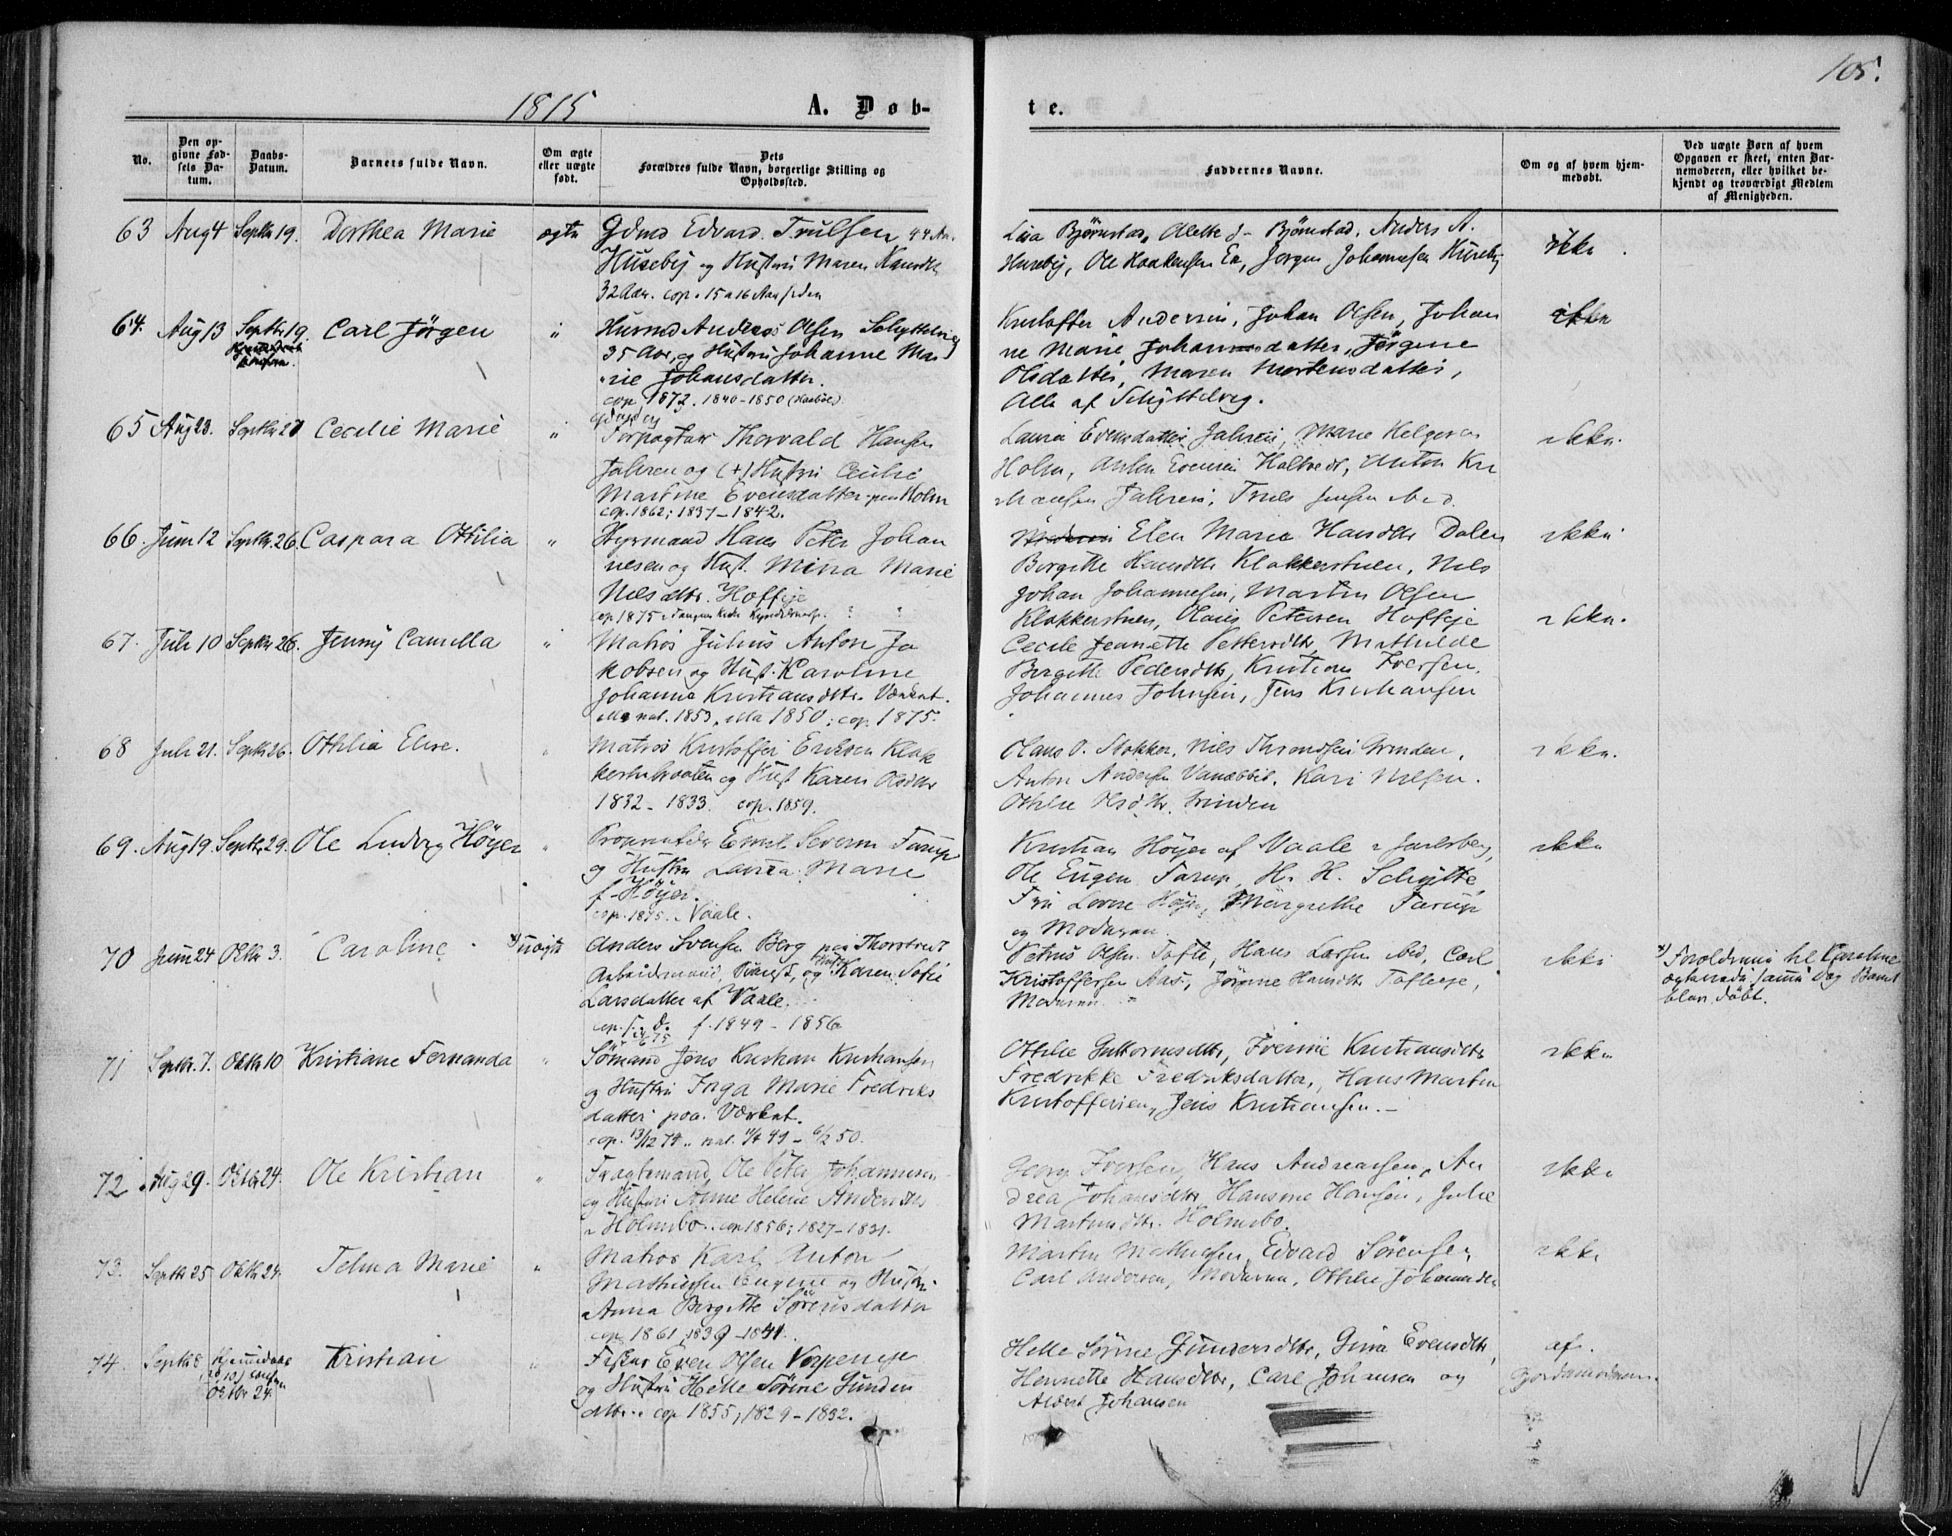 105.
1875 A. Døb-
te.
No.
Den op-
givne Fød-
sels Da-
tum.
Daabs-
Datum.
Barnets fulde Navn.
Om ægte
eller uægte
født.
Dets
Forældres fulde Navn, borgerlige Stilling og
Opholdssted.
Faddernes Navne.
Om og af hvem hjem-
medøbt.
Ved uægte Børn af hvem
Opgaven er skeet, enten Bar-
nemoderen, eller hvilket be-
kjendt og troværdigt Medlem
af Menigheden.
63 Aug 4 Septbr 19. Dorthea Marie ægte Gdmd Edvard Trulsen 44 Aar
Husebÿ og Hustru Maren Hansdtr
32 Aar. cop. 15 a 16 Aar siden
Bjørnstad, Alette Bjørnstad, Anders A.
Husebÿ, Ole Haakensen Ek, Jørgen Johannesen Husebÿ
ikke
64. Aug 13 Septbr 19. Carl Jörgen " Husmd Anders Olsen Schÿttelvig
35 Aar, og Hustru Johanne Ma
rie Johansdatter.
cop. 1872. 1840-1850
Kristoffer Andersen, Johan Olsen, Johan
ne Marie Johannsdatter, Jörgine
Olsdatter, Maren Mortensdatter,
Alle af Schÿttelvig.
ikke
65 Aug 23. Septbr 27 Cecilie Marie " Thorvald Hansen
Jahren og (+) Hustru Cecilie
Martine Evensdatter Holm
cop. 1862; 1837-1842.
Laura Evensdatter Jahren, Marie Helgesen
Holm, Anton Evensen Holtvedt, Anton Kri
stiansen Jahren, Truls Jensen
ikke.
66. Juni 12 Septbr. 26. Caspara Othilia " Styrmand Hans Peter Johan
nesen og Hust. Mina Marie
Nilsdtr. Hoffeje
cop 1875
Elen Marie Hansdtr Dalen
Birgitte Hansdtr Klokkerstuen, Nils
Johan Johannesen, Martin Olsen
Klokkerstuen, Olaus Petersen Hoffeje
ikke
67. Juli 10 Septbr 26. Jenny Camilla " Matros Julius Anton Ja
kobsen og Hust. Karoline
Johanne Kristiansdtr. Værket.
ille nat. 1853, illa 1850; cop. 1875.
Cecilie Jeanette Pettersdtr, Mathilde
Birgitte Pedersdtr, Kristian Iversen,
Johannes Johnsen, Jens Kristiansen
ikke.
68 Juli 21. Septbr 26. Othilia Elise. " Matros Kristoffer Eriksen Klok
kerstubraaten og Hust Karen Olsdtr
1832-1833. cop. 1859.
Olaus O. Stokker, Nils Throndsen Grinden,
Anton Andersen Vanebbid, Kari Nilsen.
Othilie Olsdtr. Grinden
ikke.
69. Aug 19. Septbr 29. Ole Ludvig Höÿer " Emil Severin Farup
og Hustru Laura Marie
f. Höÿer.
cop. 1875. Vaale.
Kristian Höÿer af Vaale i Jarlsberg,
Ole Eugen Farup, H. H. Schÿtte
Fru Lovise Höÿer, Margrethe Farup
og Moderen.
ikke
70 Juni 24 Oktbr 3. Caroline x) uægte Anders Svensen Berg paa Thorstvedt
Arbeidsmand, og Hustru Karen Sofie
Larsdatter af Vaale.
cop. s. d. f. 1849-1856
Petrus Olsen Tofte, Hans Larsen, Carl
Kristoffersen Aas, Jörine Hansdtr Tofteeje,
Moderen
ikke
x) Forældrene til Karoline
ægteviede samme Dag Barnet
blev døbt.
71 Septbr. 7. Oktbr 10 Kristiane Fernanda " Sømand Jens Kristian Kristiansen
og Hustru Inga Marie Fredriks
datter paa Værket.
cop. 13/12 74. nat. 49 - 6/2 50.
Othilie Guttormsdtr, Iverine Kristiansdtr
Fredrikke Fredriksdatter, Hans Martin
Kristoffersen, Jens Kristiansen.
ikke
72 Aug 29. Oktbr 24. Ole Kristian " Fragtemand Ole Peter Johannesen
og Hustru Anne Helene Andersdtr
i Holmsbo. cop 1856; 1827-1831.
Georg Iversen, Hans Andreassen, An
drea Johansdtr, Hansine Hansen, Julie
Martinsdtr. Holmsbo.
ikke
73. Septbr 25 Oktbr 24. Telma Marie " Matros Karl Anton
Mathiesen Engene og Hustr.
Anna Birgitte Sörensdatter
cop. 1861, 1839-1841.
Martin Mathiesen, Edvard Sørensen,
Carl Andersen, Moderen, Othilie Johannesdtr
ikke
74. Septbr 8 Hjemmedøbt
Oktbr 24. Kristian " Fisker Even Olsen Verpeneje
og Hustru Helle Sörine Gunders
dtr. cop 1855, 1829-1832.
Helle Sörine Gundersdtr, Gina Evensdtr,
Henriette Hansdtr, Carl Johansen og
Johansen
af
Gjordamoderen.